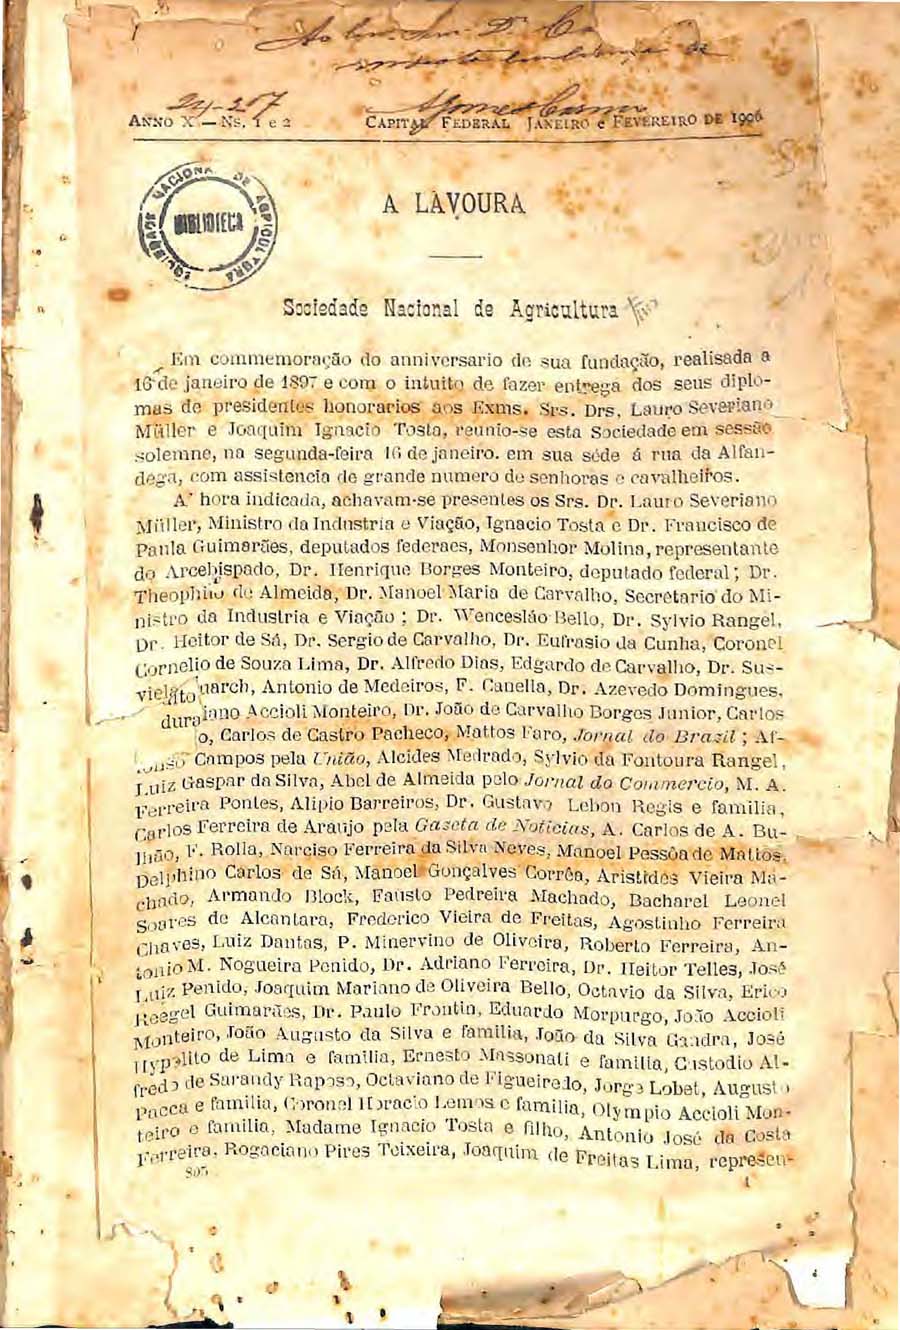 24-207
ANNO X — Ns. 1 e 2
CAPITAL FEDERAL JANEIRO e FEVEREIRO DE 1906
SOCIEDADE NACIONAL DE AGRICULTURA
BIBLIOTECA
A LAVOURA
Sociedade Nacional de Agricultura
Em commemoração do anniversario de sua fundação, realisada a
16 de janeiro de 1897 e com o intuito de fazer entrega dos seus diplo-
mas de presidentes honorarios aos Exms. Srs. Drs. Lauro Severiano
Müller e Joaquim Ignacio Tosta, reunio-se esta Sociedade em sessão
solemne, na segunda-feira 16 de janeiro. em sua séde á rua da Alfan-
dega, com assistencia de grande numero de senhoras e cavalheiros.
A' hora indicada, achavam-se presentes os Srs. Dr. Lauro Severiano
Müller, Ministro da Industria e Viação, Ignacio Tosta e Dr. Francisco de
Paula Guimarães, deputados federaes, Monsenhor Molina, representante
do Arcebispado, Dr. Henrique Borges Monteiro, deputado federal; Dr.
Theophilo de Almeida, Dr. Manoel Maria de Carvalho, Secretario do Mi-
nistro da Industria e Viação ; Dr. Wencesláo Bello, Dr. Sylvio Rangel,
Dr. Heitor de Sá, Dr. Sergio de Carvalho, Dr. Eufrasio da Cunha, Coronel
Cornelio de Souza Lima, Dr. Alfredo Dias, Edgardo de Carvalho, Dr. Sus-
Antonio de Medeiros, F. Canella, Dr. Azevedo Domingues,
Accioli Monteiro, Dr. João de Carvalho Borges Junior, Carlos
o, Carlos de Castro Pacheco, Mattos Faro, Jornal do Brazil ; Af-
Campos pela União, Alcides Medrado, Sylvio da Fontoura Rangel,
Luiz Gaspar da Silva, Abel de Almeida pelo Jornal do Commercio, M. A.
Ferreira Pontes, Alipio Barreiros, Dr. Gustavo Lebon Regis e familia,
Carlos Ferreira de Araujo pela Gazeta de Noticias, A. Carlos de A. Bu-
lhão, F. Rolla, Narciso Ferreira da Silva Neves, Manoel Pessôa de Mattos,
Delphino Carlos de Sá, Manoel Gonçalves Corrêa, Aristides Vieira Ma-
chado, Armando Block, Fausto Pedreira Machado, Bacharel Leonel
Soares de Alcantara, Frederico Vieira de Freitas, Agostinho Ferreira
Chaves, Luiz Dantas, P. Minervino de Oliveira, Roberto Ferreira, An-
tonio M. Nogueira Penido, Dr. Adriano Ferreira, Dr. Heitor Telles, José
Luiz Penido, Joaquim Mariano de Oliveira Bello, Octavio da Silva, Erico
Guimarães, Dr. Paulo Frontin, Eduardo Morpurgo, João Accioli
Monteiro, João Augusto da Silva e familia, João da Silva Gandra, José
Hypolito de Lima e familia, Ernesto Massonati e familia, Custodio Al-
fredo de Sarandy Raposo, Octaviano de Figueiredo, Jorge Lobet, Augusto
Pacca e familia, Coronel Horacio Lemos e familia, Olympio Accioli Mon-
teiro e familia, Madame Ignacio Tosta e filho, Antonio José da Costa
Ferreira, Rogaciano Pires Teixeira, Joaquim de Freitas Lima, represen-
1